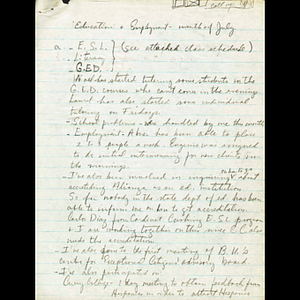 Education + Employment - month of July
a. - E.S.L. } (see attached class schedule)
- Literacy
- G.E.D.
has started tutoring some students in the
G.E.D. courses who can't come in the evenings
has also started some individual
tutoring on Fridays.
- School problems - handled by me this month
- Employment - has been able to place
2 to 3 people a week. Eugenia was assigned
to do initial interviewing for new clients in
the mornings.
- I've also been involved in
about accrediting Alianza as an ed. institution
So far nobody in the state dept of ed. has been
able to inform me on how to get accreditation.
Carlos Diaz from Cardinal Cushing E.S.L. program
+ I are working together on this since C.C. also
needs the accreditation.
- I've also gone to the first meeting of B.U.'s
Center for Exceptional Citizens advisory board
- I've also participated in:
Curry College - 1 day meeting to obtain feedback from
Hispanics in order to attract Hispanic